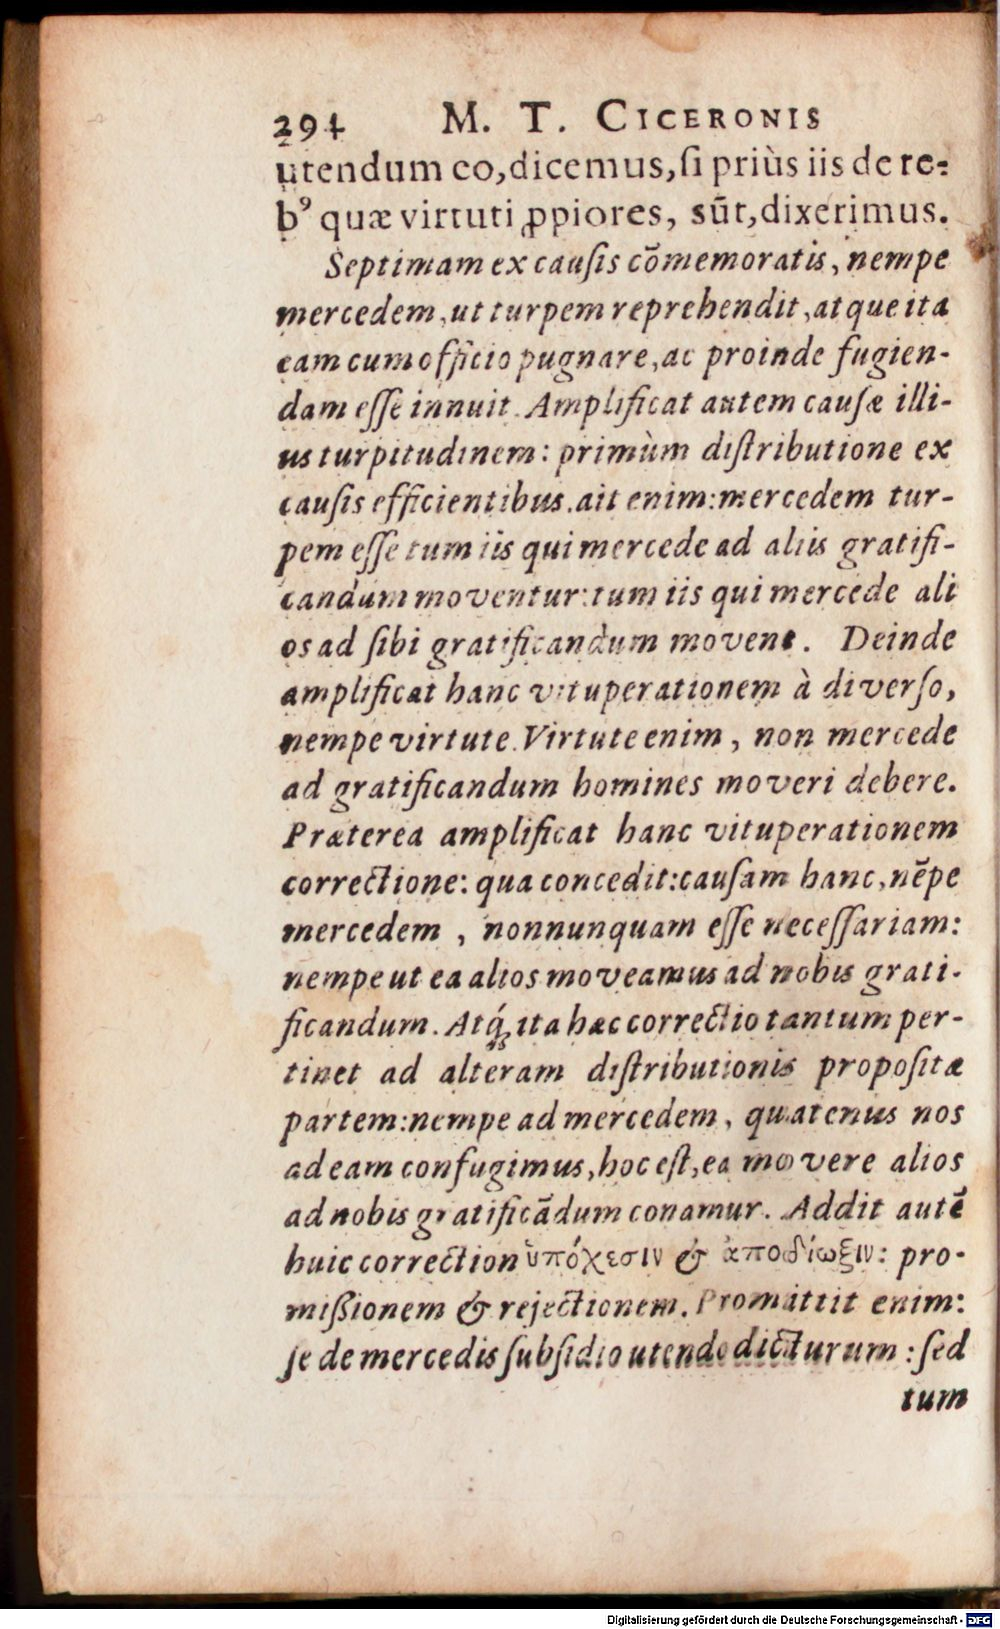 294 M. T. CICERONIS
utendum eo, dicemus, ſi priùs iis de re-
bꝰ quæ virtuti ꝓpiores, sūt, dixerimus.
Septimam ex cauſis cōmemoratis, nempe
mercedem, ut turpem reprehendit, atque ita
eam cum officio pugnare, ac proinde fugien-
dam eſſe innuit. Amplificat autem cauſæ illi-
us turpitudinem: primùm diſtributione ex
cauſis efficientibus. ait enim: mercedem tur-
pem eſſe tum iis qui mercede ad aliis gratifi-
candum moventur: tum iis qui mercede ali
os ad ſibi gratificandum movent. Deinde
amplificat hanc vituperationem à diverſo,
nempe virtute. Virtute enim, non mercede
ad gratificandum homines moveri debere.
Præterea amplificat hanc vituperationem
correctione: qua concedit: cauſam hanc, nēpe
mercedem, nonnunquam eſſe neceſſariam:
nempe ut ea alios moveamus ad nobis grati-
ficandum. Atq́; ita hæc correctio tantum per-
tinet ad alteram diſtributionis propoſitæ
partem: nempe ad mercedem, quatenus nos
ad eam confugimus, hoc eſt, ea movere alios
ad nobis gratificādum conamur. Addit autē
huic correction ὑπόχεσιν & ἀποδίωξιν: pro-
miſſionem & rejectionem. Promittit enim:
ſe de mercedis ſubſidio utendo dicturum: ſed
tum
Digitalisierung gefördert durch die Deutsche Forschungsgemeinschaft - DFG